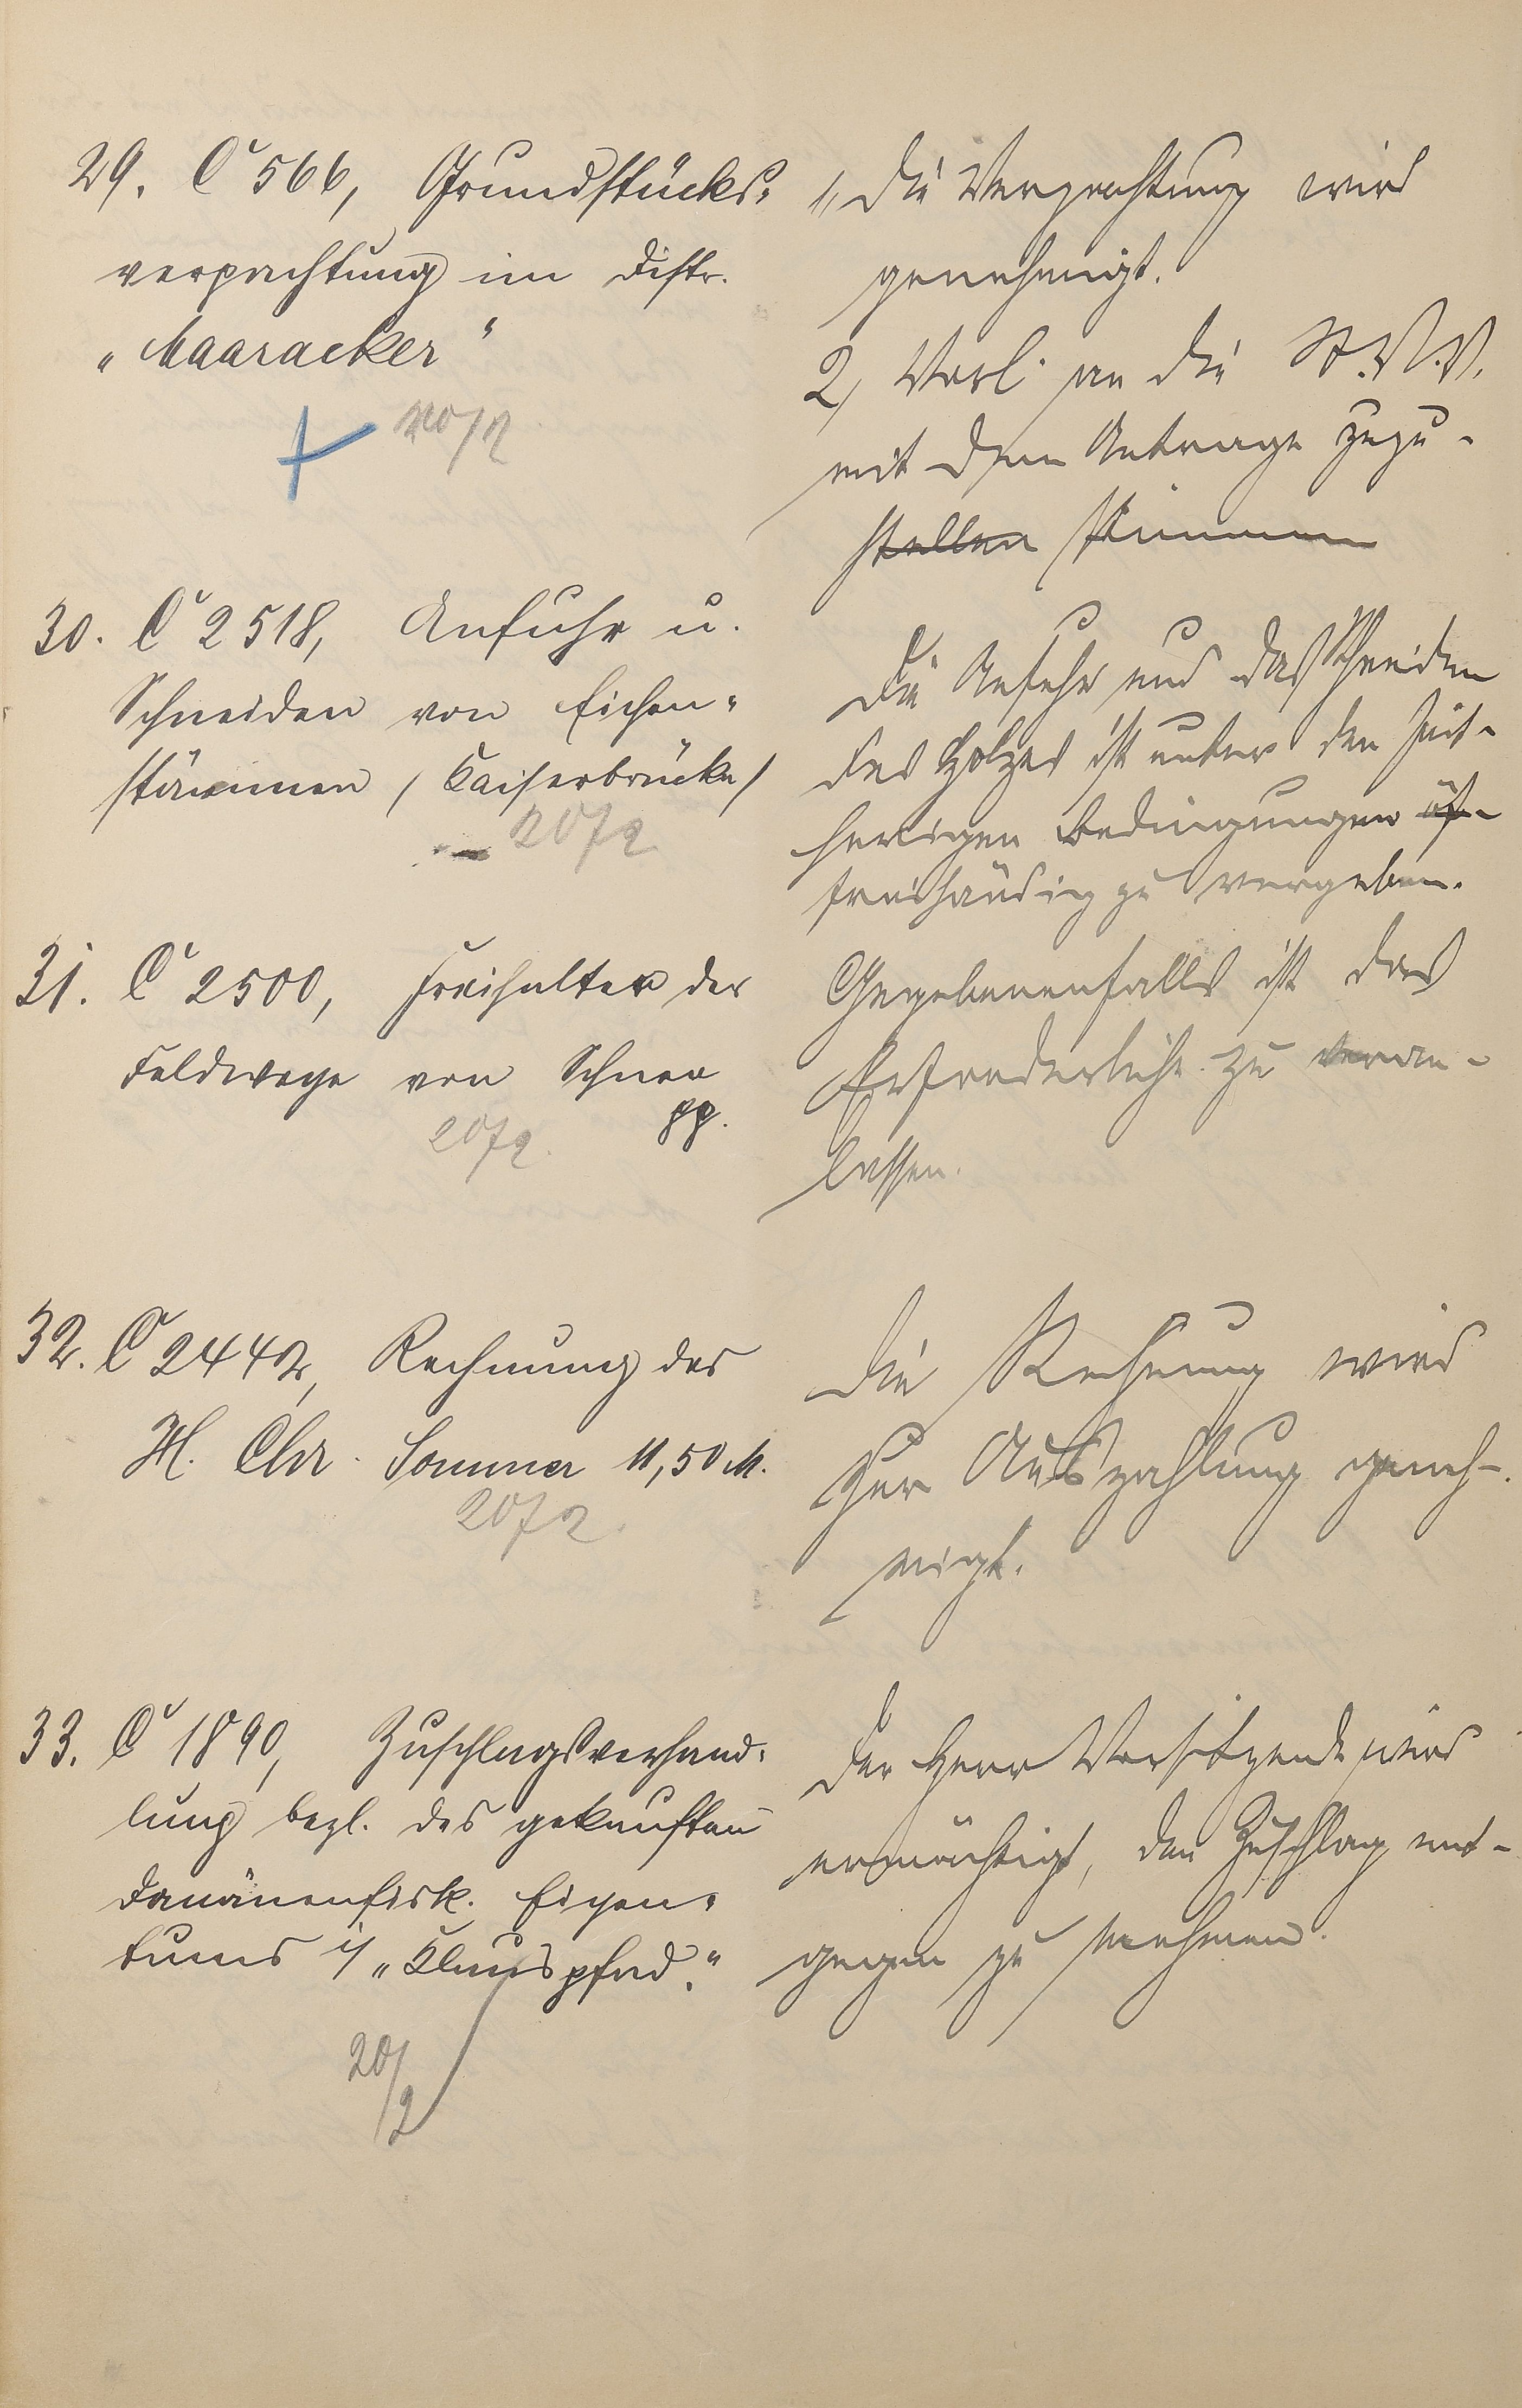 29. C 566, Grundstücks-
verpachtung im Distr.
"Maaracker"
20/2
1, Die Verpachtung wird
genehmigt.
2, Vorl. an die St.V.V.
mit dem Antrage zuzu-
stellen stimmen
30. C 2518, Anfuhr u.
Schneiden von Eichen-
stämmen / Kaiserbrücke /
20/2
Die Anfuhr und das Schneiden
des Holzes ist unter den seit-
herigen Bedingungen öf-
freihändig zu vergeben.
31. C 2500, Freihalten der
Feldwege von Schnee
pp.
20/2.
Gegebenenfalls ist das
Erforderliche zu veran-
lassen.
32. C 2442, Rechnung des
H. Chr. Sommer 11,50 M.
20/2.
Die Rechnung wird
zur Auszahlung geneh-
migt.
33. C 1890, Zuschlagsverhand-
lung bezl. des gekauften
Domänenfisk. Eigen-
tums i/ "Klauspfad."
20/2
Der Herr Vorsitzende wird
ermächtigt, den Zuschlag ent-
gegen zu nehmen.